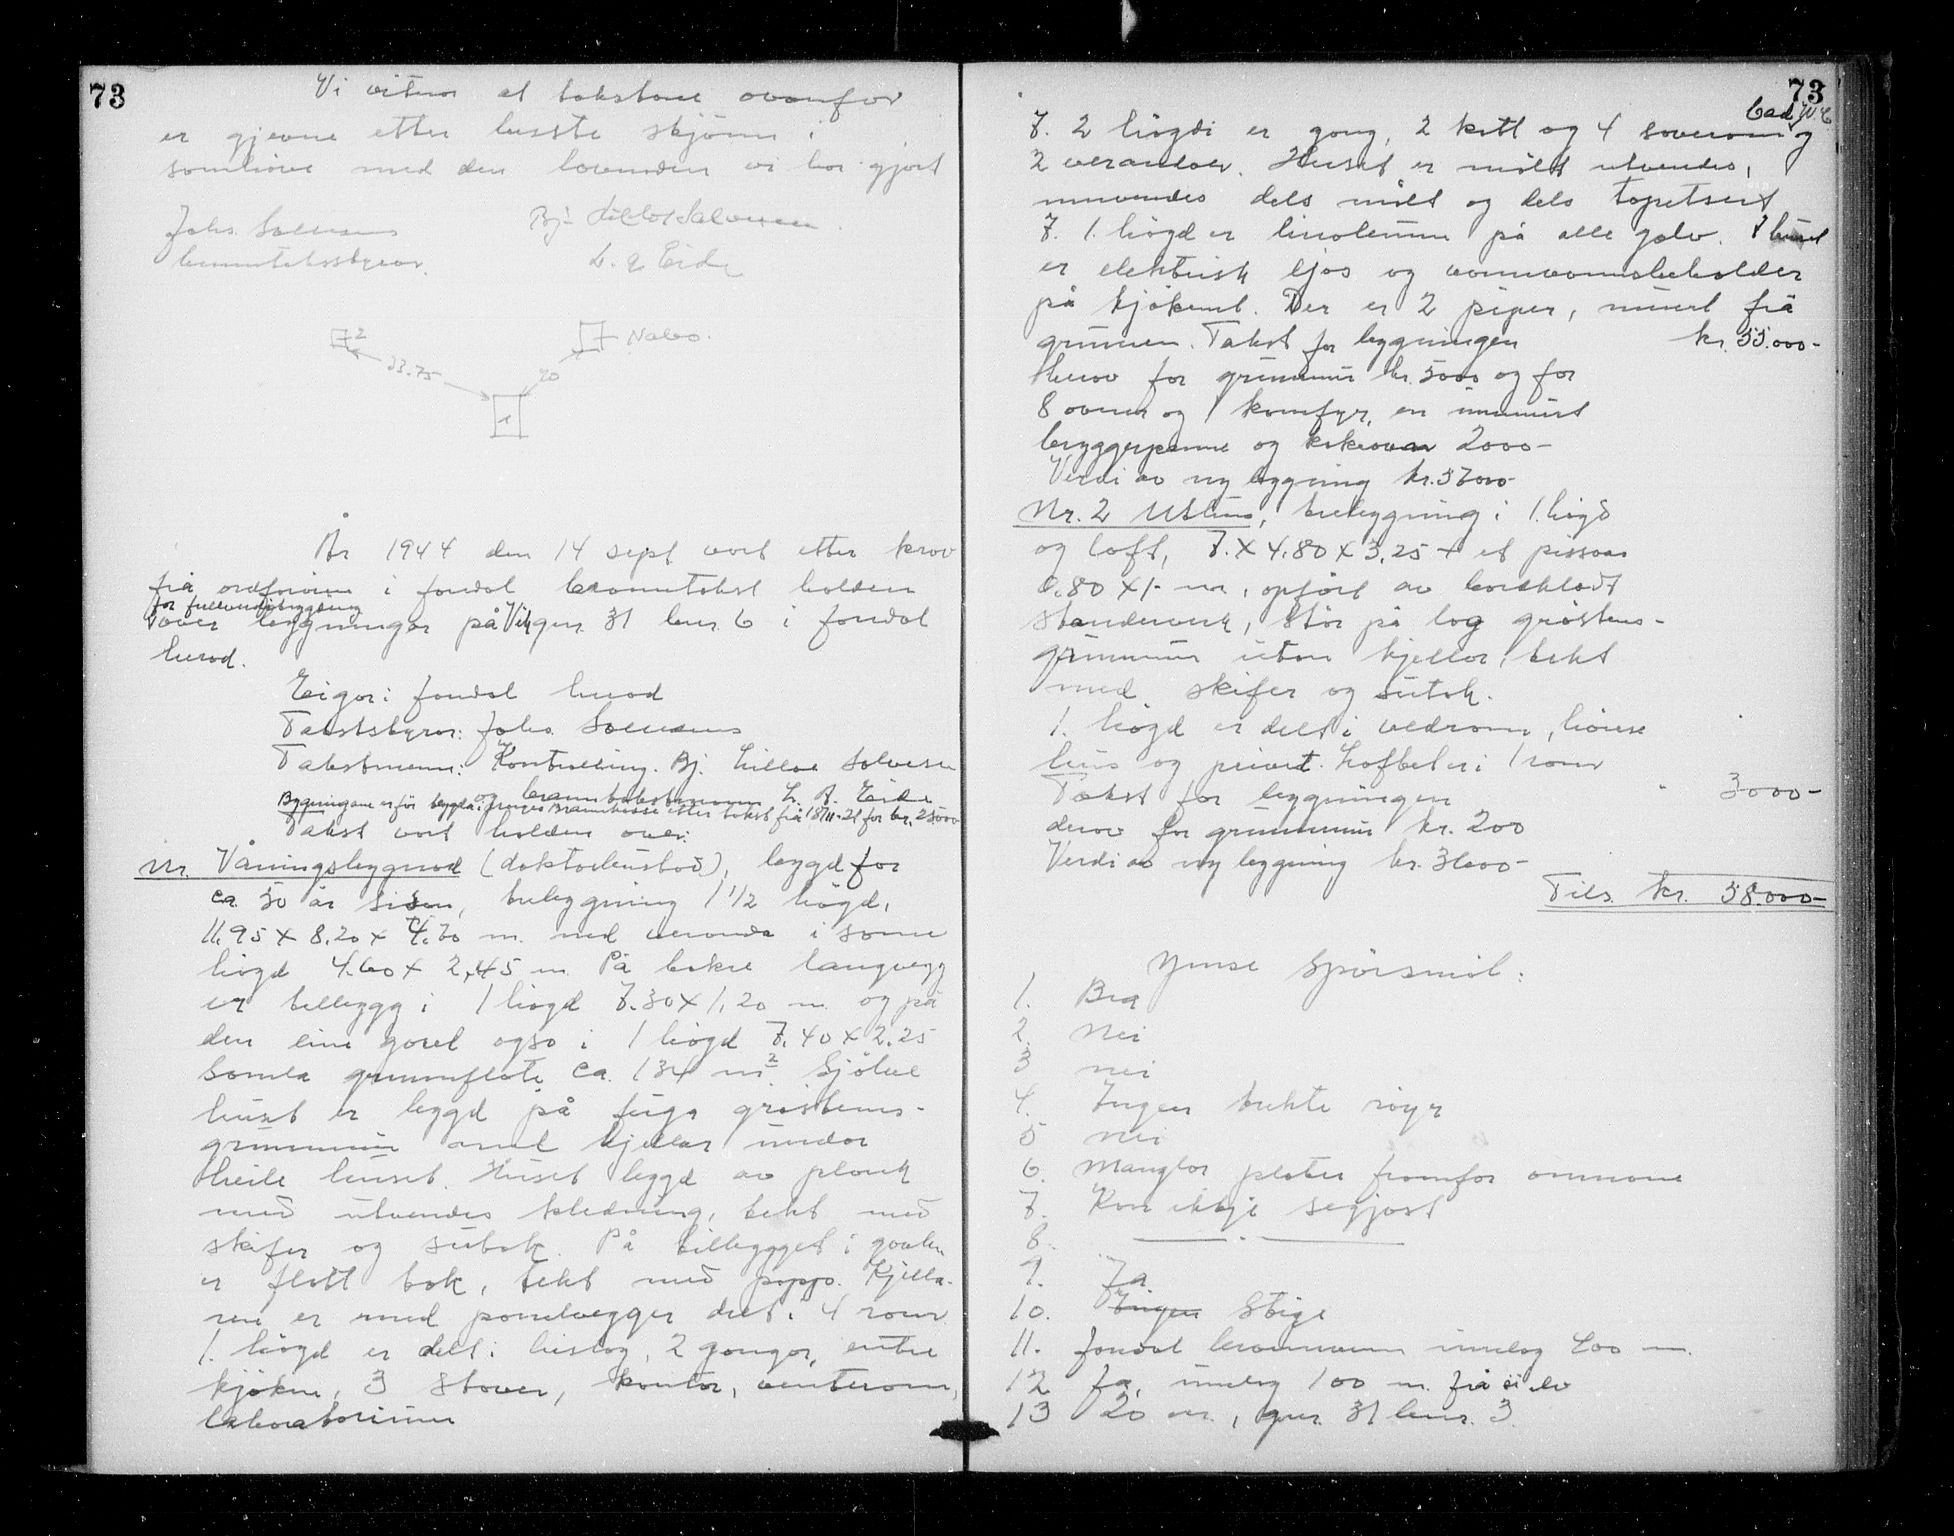 73
Vi vitnar at takstane ovanfor
er gjevne etter beste skjönn i
samhöve med den lovnaden vi har gjort
Johs. Solenæs
branntakstsstyrar.
Bj. Lilloe Salvesen
L. A. Eide
2
Nabo.
33.75
20
1
År 1944 den 14 sept vart etter krav
frå ordföraren i Jondal branntakst halden
for fullverdiforsikring
over bygningar på Vik gnr. 31 bnr. 6 i Jondal
herad.
Eigar: Jondal herad
Takststyrar: Johs. Solenæs
Takstmenn: Kontrolling. Bj. Lilloe Salvesen
og branntakstmann L. A. Eide
Bygningane er för trygda i Noregs Brannkasse etter takst frå 18/11-21 for kr. 25000
Takst vart halden over:
Nr. Våningsbygnad (doktorbustad), bygd for
ca. 50 år sidan, trebygning 1 1/2 högd,
11.95 x 8.20 x 4.70 m. med veranda i same
högd 4.60 x 2,45 m. På bakre langvegg
er tilbygg i 1 högd 7.30 x 1,20 m. og på
den eine gavl også i 1 högd 7.40 x 2.25
Samla grunnflate ca. 134 m2. Sjölve
huset er bygd på fuga gråsteins-
grunnmur med kjellar under
heile huset. Huset bygd av plank
med utvendes kledning, tekt med
skifer og sutak. På tilbygget i gavlen
er flatt tak, tekt med papp. Kjella-
ren er med panelvegger delt i 4 rom
1. högd er delt i bislag, 2 gangar, entre
kjöken, 3 stover, kontor, venterom,
laboratorium
73
bad, W.C
I. 2 högdi er gang, 2 kott og 4 soverom og
2 verandaer. Huset er målt utvendes,
innvendes dels målt og dels tapetsert
I. 1. högd er linoleum på alle golv. I huset
er elektrisk ljos og varmvannsbeholder
på kjökenet. Der er 2 piper, murt frå
grunnen. Takst for bygningen kr. 55.000-
Herav for grunnmur kr. 5000 og for
8 ovner og 1 komfyr, en innmurt
bryggerpanne og kakeovn 2000-
Verdi av ny bygning kr. 57000-
Nr. 2 Uthus, trebygning i 1. högd
og loft, 7. x 4.80 x 3.25 + et pissoar
0.80 x 1.- m, opfört av bordkledt
standerverk, står på låg gråsteins-
grunnmur utan kjellar, tekt
med skifer og sutak.
1. högd er delt i vedrom, hönse
hus og privet. Loftet er i 1 rom
Takst for bygningen 3000-
derav for grunnmur kr. 200
Verdi av ny bygning kr. 3600-
Tils. kr. 58.000-
Ymse Spörsmål:
1. Bra
2. Nei
3 nei
4. Ingen trekte röyr
5 nei
6. Manglar plater framfor omnane
7. Kan ikkje segjast
8.
9. Ja
10. Ingen Stige
11. Jondal brannvern innlag 400 m.
12 Ja, innlag 100 m. frå ei elv
13 20 m., gnr. 31 bnr. 3.